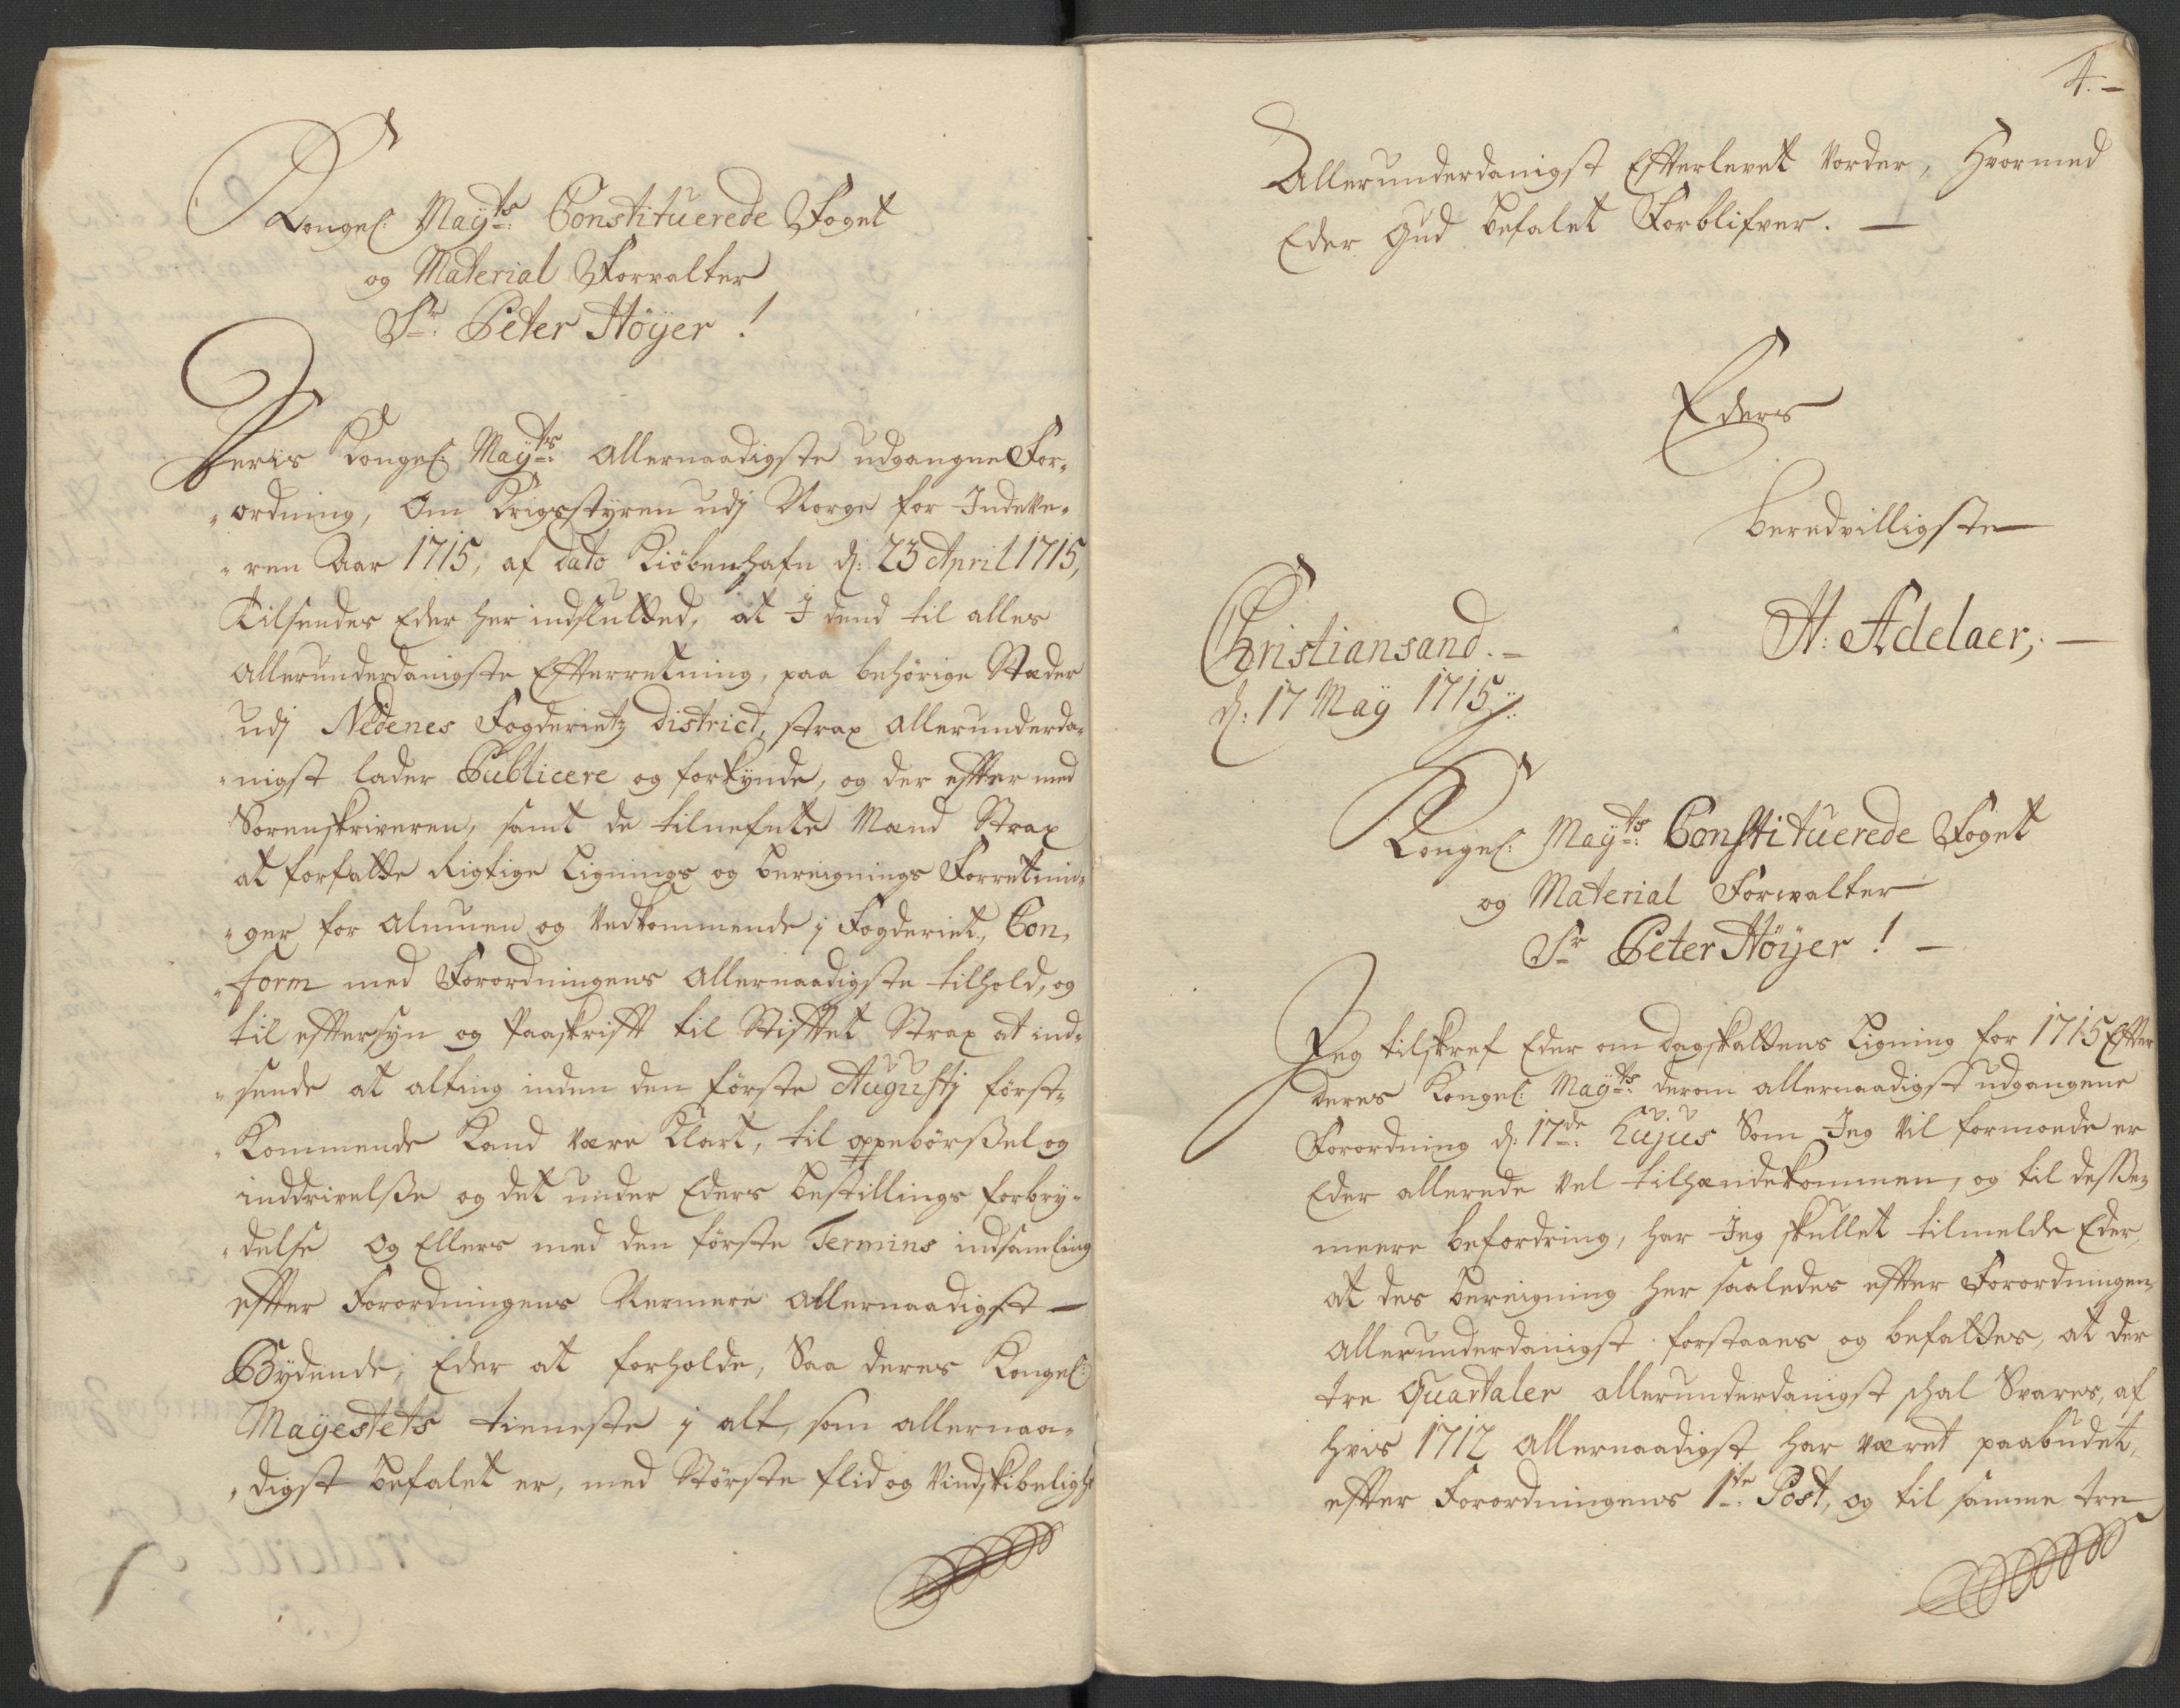 Kongel: Maÿts: Constituerede Foget
og Material Forvalter
Sr. Peter Höÿer!
Deris Kongel: Maÿts: Allernaadigste udgangne For-
ordning, Om Krigsstÿren udj Norge for Indeve-
ren Aar 1715, af dato Kiöbenhafn d: 23 April 1715,
Tilsendes Eder her indslutted, at I dend til alles
allerunderdanigste Efterretning, paa behörige Stæder
udj Nedenes Fogderietz District, strax allerunderda-
nigst lader Publicere og forkÿnde, og der effter med
Sorenskriveren, samt de tilnefnte Mænd Strax
at forfatte Rigtige Lignings og bereignings Forretnin-
ger for Almuen og Vedkommende j Fogderiet, Con-
form med Forordningens Allernaadigste tilhold, og
til efftersÿn og Paaskrifft til Stifftet Strax at ind-
sende at alting inden den förste Augustj först-
Kommende Kand være Klart, til oppebörßel og
inddrivelße og det under Eders bestillings forbrÿ-
delse og Ellers med den förste Termins indsamling
effter Forordningens Nermere Allernaadigst
Bÿdende, Eder at forholde, Saa deres Kongel:
Maÿestets tieneste j alt, som allernaa-
digst befalet er, med Störste flid og Vindskibeligh
4.-
Allerunderdanigst Efterlevet vorder, Hvormed
Eder Gud befalet Forblifver.
Eders
beredvilligste
H: Adelaer;
Christiansand.
d: 17 Maÿ 1715
Kongel: Maÿts: Constituerede Foget
og Material Forwalter
Sr Peter Höÿer!
Jeg tilskref Eder om dagskattens Ligning for 1715 Efter
deres Kongel: Maÿts: derom allernaadigst udgangene
Forordning d: 17de: hujus Som Jeg vil formode er
Eder allerede vel tilhændekommen, og til desßen
meere befordring, har Jeg skullet tilmelde Eder,
at des bereigning her saaledes effter Forordningen
Allerunderdanigst forstaaes og befattes, at der
tre Quartaler allerunderdanigst schal Svares, af
hvis 1712 Allernaadigst har været paabudet,
effter Forordningens 1ste: Post, og til samme tre